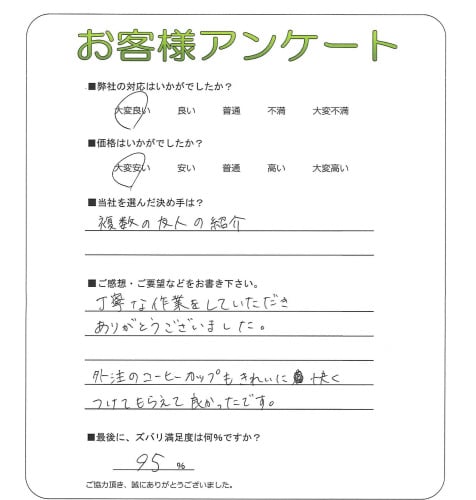 お客様アンケート
■弊社の対応はいかがでしたか？
大変良い 良い 普通 不満 大変不満
■価格はいかがでしたか？
大変安い 安い 普通 高い 大変高い
■当社を選んだ決め手は？
複数の友人の紹介
■ご感想・ご要望などをお書き下さい。
丁寧な作業をしていただき
ありがとうございました。
外注のコーヒーカップもきれいに 快く
つけてもらえて良かったです。
■最後に、ズバリ満足度は何%ですか？
95 %
ご協力頂き、誠にありがとうございました。